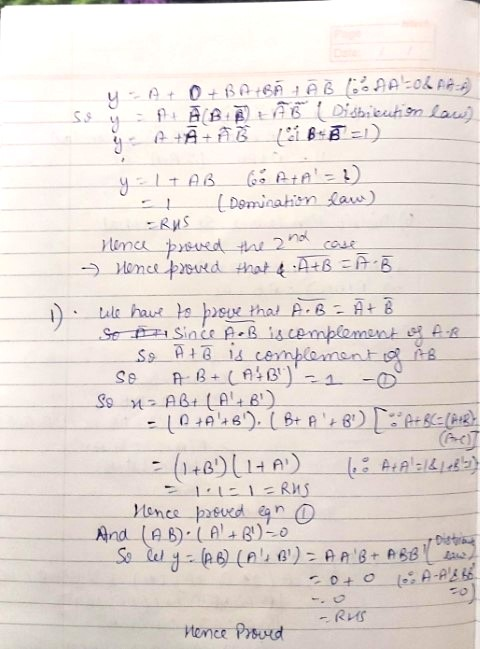 Page:
Date: / /
y = A + 0 + BA + BĀ + ĀB̄ (∵ AA' = 0 & AA=A)
So y = A + Ā(B+B̄) + ĀB̄ (Distribution law)
y = A + Ā + ĀB̄ (∵ B+B̄ = 1)
y = 1 + AB (∵ A+A' = 1)
= 1 (Domination law)
= RHS
Hence proved the 2nd case
→ Hence proved that \overline{A+B} = Ā·B̄
1) · We have to prove that \overline{A·B} = Ā + B̄
Since \overline{A·B} is complement of A·B
So Ā+B̄ is complement of AB
So A·B + (A'+B') = 1 – ①
So x = AB + (A'+B')
= (A+A'+B')·(B+A'+B') [∵ A+BC=(A+B)·(A+C)]
= (1+B')(1+A') (∵ A+A'=1 & 1+B'=1)
= 1·1 = 1 = RHS
Hence proved eqn ①
And (AB)·(A'+B') = 0
So let y = (AB)(A'+B') = AA'B + ABB' (law)
= 0 + 0 (∵ A·A' & BB' = 0)
= 0
= RHS
Hence Proved